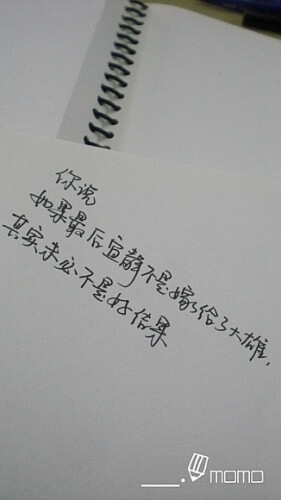 你说
如果最后宜静不是嫁给了大雄，
其实未必不是好结果
momo